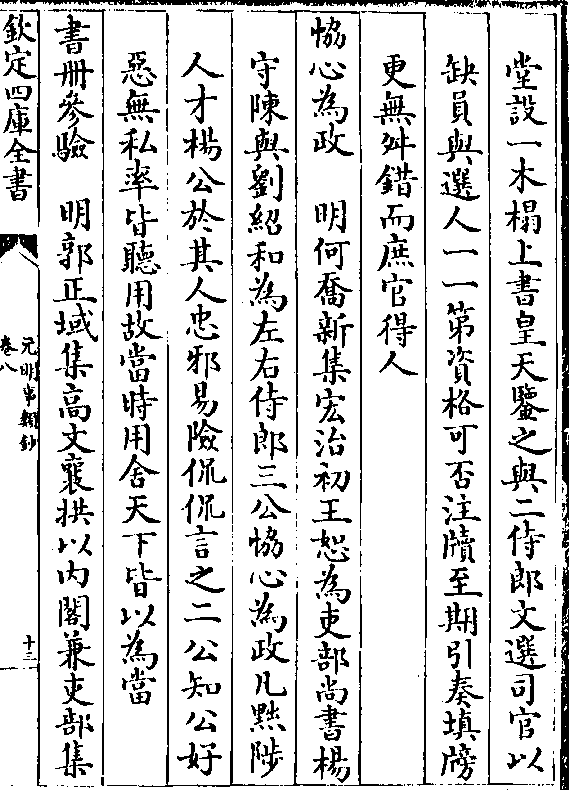 堂設一木榻上書皇天鑒之與二侍郎文選司官以
缺員與選人一一第資格可否注牘至期引奏填牓
更無舛錯而庶官得人
恊心為政　明何喬新集宏治初王恕為吏部尚書楊
守陳與劉紹和為左右侍郎三公恊心為政凡黜陟
人才楊公於其人忠邪易險侃侃言之二公知公好
惡無私率皆聽用故當時用舍天下皆以為當
書冊參驗　明郭正域集高文襄拱以內閣兼吏部集
欽定四庫全書
元明事類鈔
卷八
十三